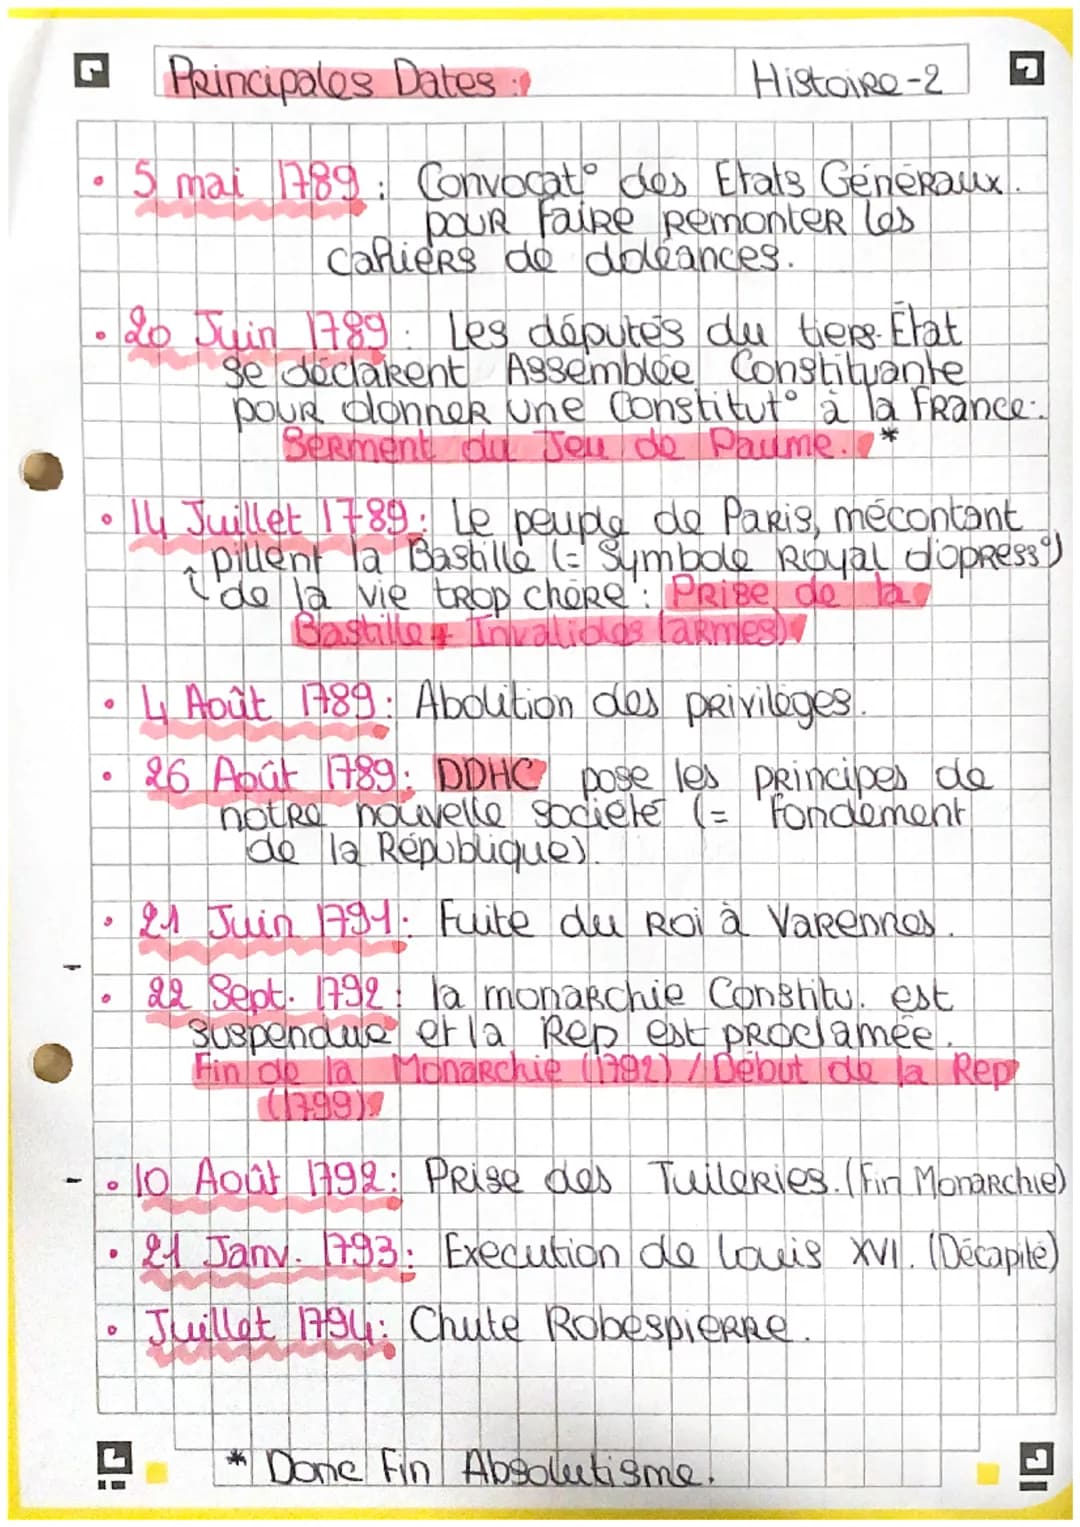 Principales Dates :
Histoire-2
• 5 mai 1789 : Convocat° des Etats Généraux.
pour faire remonter les
cahiers de doléances.
• 20 Juin 1789 : Les députés du tiers-État
se déclarent Assemblée Constituante
pour donner une Constitut° à la France :
Serment du Jeu de Paume. *
• 14 Juillet 1789 : Le peuple de Paris, mécontant
pillent la Bastille (= Symbole Royal d'opress°)
de la vie trop chère : Prise de la
Bastille + Invalides (armes)
• 4 Août 1789 : Abolition des privilèges.
• 26 Août 1789 : DDHC pose les principes de
notre nouvelle société (= fondement
de la République).
• 21 Juin 1791 : Fuite du Roi à Varennes.
• 22 Sept. 1792 : la monarchie Constitu. est
suspendue et la Rep est proclamée.
Fin de la Monarchie (1792) / Début de la Rep
(1799)
• 10 Août 1792 : Prise des Tuileries. (Fin Monarchie)
• 21 Janv. 1793 : Execution de Louis XVI. (Décapité)
• Juillet 1794 : Chute Robespierre.
* Donc Fin Absolutisme.